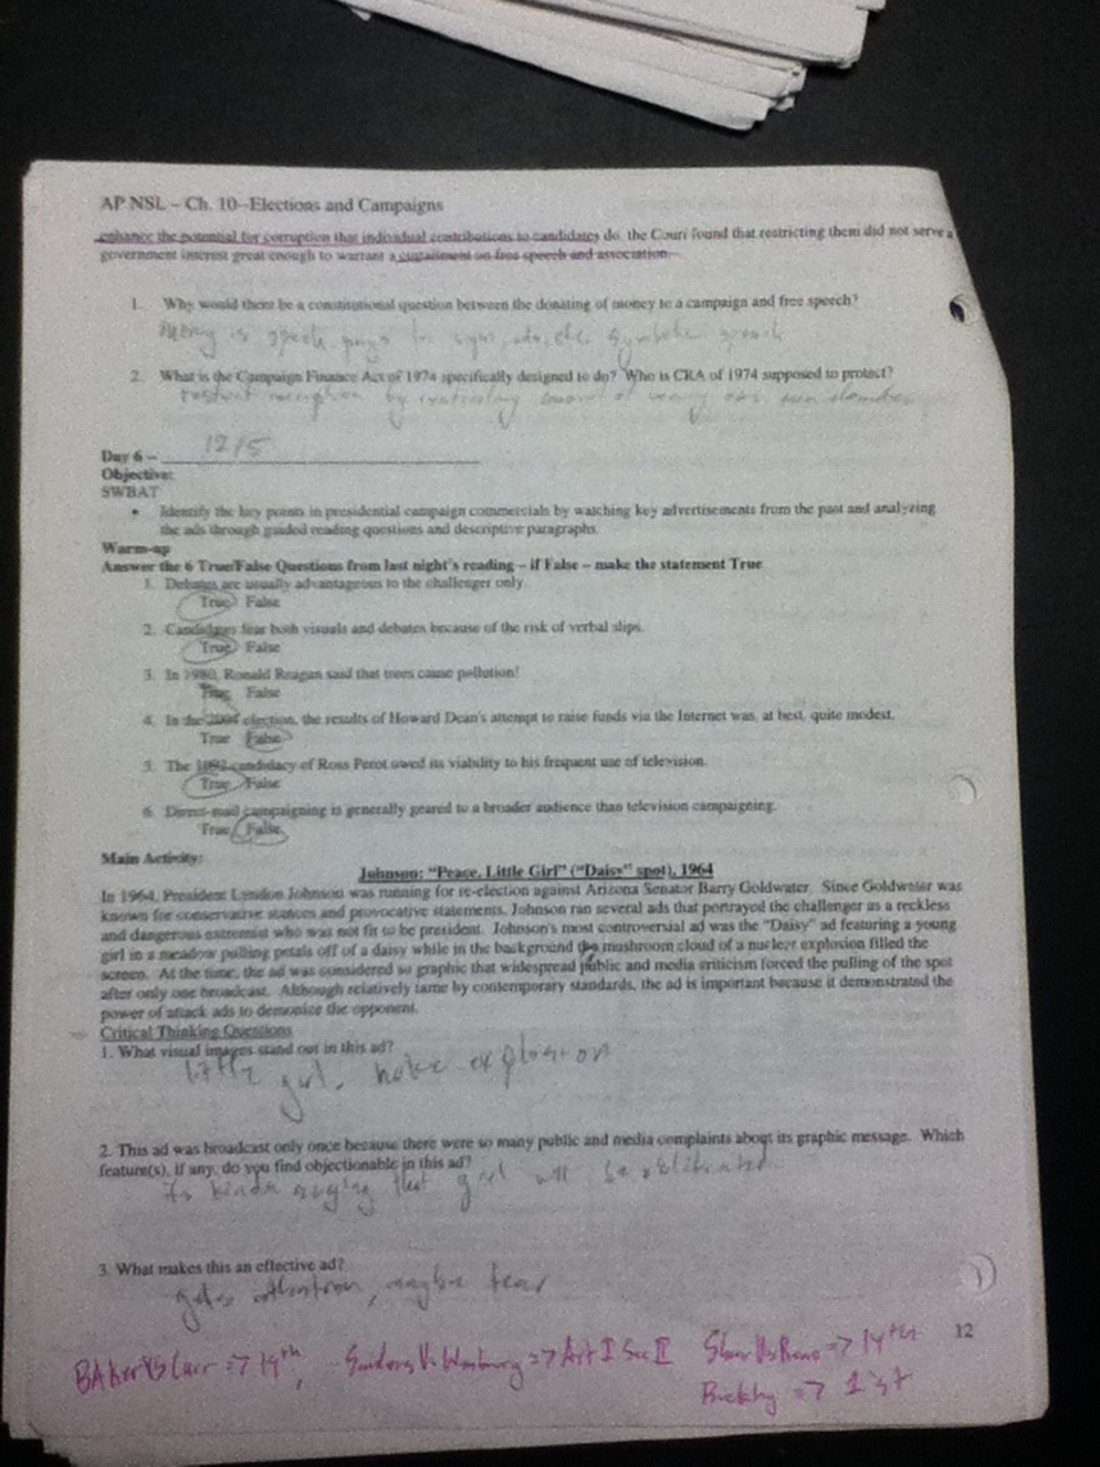 AP NSL – Ch. 10--Elections and Campaigns
enhance the potential for corruption that individual contributions to candidates do, the Court found that restricting them did not serve a
government interest great enough to warrant a curtailment on free speech and association.
1. Why would there be a constitutional question between the donating of money to a campaign and free speech?
Money is speech, pays for signs, ads, etc. Symbolic speech
2. What is the Campaign Finance Act of 1974 specifically designed to do? Who is CRA of 1974 supposed to protect?
by amount of money
Day 6 – 12/5
Objective:
SWBAT
• Identify the key points in presidential campaign commercials by watching key advertisements from the past and analyzing
the ads through guided reading questions and descriptive paragraphs.
Warm-up
Answer the 6 True/False Questions from last night's reading – if False – make the statement True
1. Debates are usually advantageous to the challenger only.
True False
2. Candidates fear both visuals and debates because of the risk of verbal slips.
True False
3. In 1980, Ronald Reagan said that trees cause pollution!
True False
4. In the 2004 election, the results of Howard Dean's attempt to raise funds via the Internet was, at best, quite modest.
True False
5. The 1992 candidacy of Ross Perot owed its viability to his frequent use of television.
True False
6. Direct-mail campaigning is generally geared to a broader audience than television campaigning.
True False
Main Activity:
Johnson: "Peace, Little Girl" ("Daisy" spot), 1964
In 1964, President Lyndon Johnson was running for re-election against Arizona Senator Barry Goldwater. Since Goldwater was
known for conservative stances and provocative statements, Johnson ran several ads that portrayed the challenger as a reckless
and dangerous extremist who was not fit to be president. Johnson's most controversial ad was the "Daisy" ad featuring a young
girl in a meadow pulling petals off of a daisy while in the background the mushroom cloud of a nuclear explosion filled the
screen. At the time, the ad was considered so graphic that widespread public and media criticism forced the pulling of the spot
after only one broadcast. Although relatively tame by contemporary standards, the ad is important because it demonstrated the
power of attack ads to demonize the opponent.
Critical Thinking Questions
1. What visual images stand out in this ad?
little girl, nuke explosion
2. This ad was broadcast only once because there were so many public and media complaints about its graphic message. Which
feature(s), if any, do you find objectionable in this ad?
its kinda that girl will be obliterated
3. What makes this an effective ad?
gets attention, maybe fear
12
BAker VS Carr => 14th, => Art I Sec II Shaw Vs Reno => 14th
Buckley => 1st